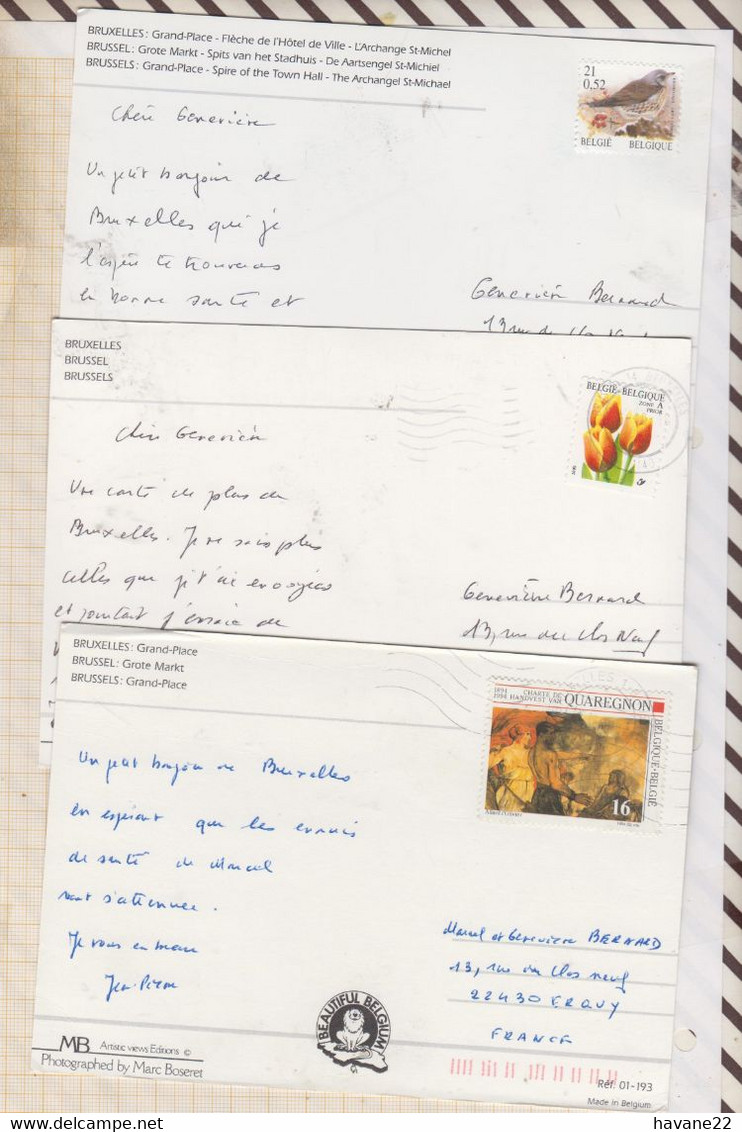 BRUXELLES : Grand-Place - Flèche de l'Hôtel de Ville - L'Archange St-Michel
BRUSSEL : Grote Markt - Spits van het Stadhuis - De Aartsengel St-Michiel
BRUSSELS : Grand-Place - Spire of the Town Hall - The Archangel St-Michael
21
0,52
BELGIË BELGIQUE
Chère Geneviève
Un petit bonjour de
Bruxelles qui je
l'espère te trouveras
en bonne santé et
Geneviève Bernard
13 rue du Clos Neuf
BRUXELLES
BRUSSEL
BRUSSELS
BELGIË-BELGIQUE
ZONE A
PRIOR
Chère Geneviève
Une carte de plus de
Bruxelles. Je ne sais plus
celles que je t'ai envoyées
et pourtant j'essaie de
Geneviève Bernard
13, rue du Clos Neuf
BRUXELLES : Grand-Place
BRUSSEL : Grote Markt
BRUSSELS : Grand-Place
1894 CHARTE DE
1994 HANDVEST VAN QUAREGNON
BELGIQUE-BELGIË
16
Un petit bonjour de Bruxelles
en espérant que les ennuis
de santé de Marcel
vont s'atténuer.
Je vous embrasse
Jean-Pierre
Marcel et Geneviève BERNARD
13, rue du Clos neuf
22430 ERQUY
FRANCE
BEAUTIFUL BELGIUM
MB Artistic views Editions ©
Photographed by Marc Boseret
Réf. 01-193
Made in Belgium
havane22 havane22